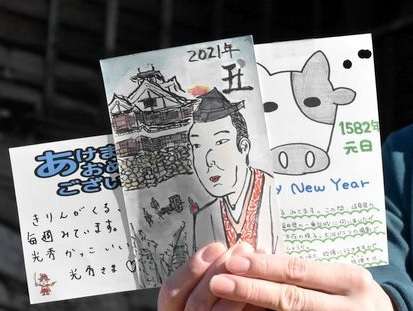 あけま
おめ
ござい
きりんがくる、
毎週みています。
光秀かっこいい
光秀さま♡
2021年
丑
1582年
元日
y New Year